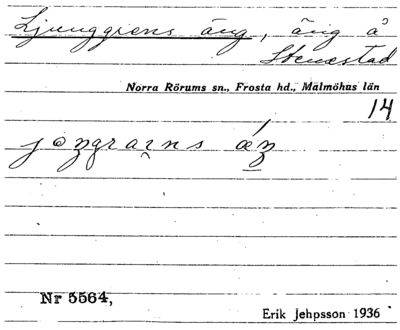 Ljunggrens äng, äng å
Stenestad
Norra Rörums sn., Frosta hd., Malmöhus län
14
Nr 5564,
Erik Jehpsson 1936